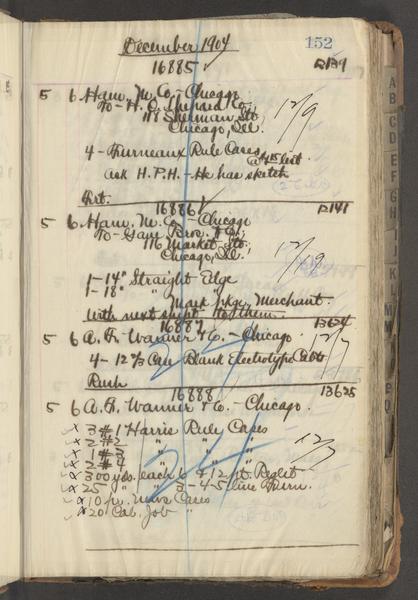 December 1904 152
16885 ✓ R139
5 6 Ham. M. Co. - Chicago
To - H. O. Shepard Co.,
Sherman St.
Chicago, Ill. 12/9
4 - Furneaux Rule Cases @ list
ask H.P.H. - He has sketch
Frt.
16886 ✓ R141
5 6 Ham. M. Co. - Chicago
To - Gane Bros. & Co.,
116 Market St.
Chicago, Ill.
1 - 14" Straight Edge
1 - 18" " "
Mark pkge. Merchant.
With next shipt to them.
16887 13624
5 6 A. F. Wanner & Co. - Chicago 12/7
4 - 12 2/3 Case Blank Electrotype Cabts
Rush 24
16888 13625
5 6 A. F. Wanner & Co. - Chicago.
x 3 #1 Harris Rule Cases
x 2 #2 " " "
x 1 #3 " " "
x 2 #4 " " " 12/7
x 300 yds. each 6 & 12 pt. Reglet
x 25 " " 3 - 4 - 5 line Furn.
x 10 pr. News Cases
x 20 Cab. Job "
24
A
B
C
D
E
F
G
H
M